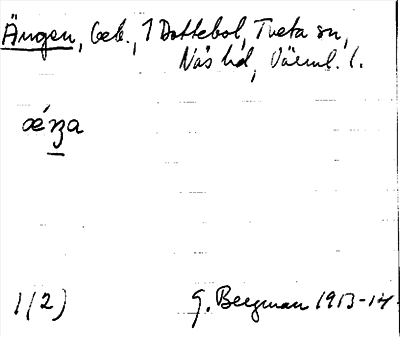 Ängen, beb., 1 Dottebol, Tveta sn,
Näs hd, Värml. l.
ǽŋa
1(2)
G. Bergman 1913-14.